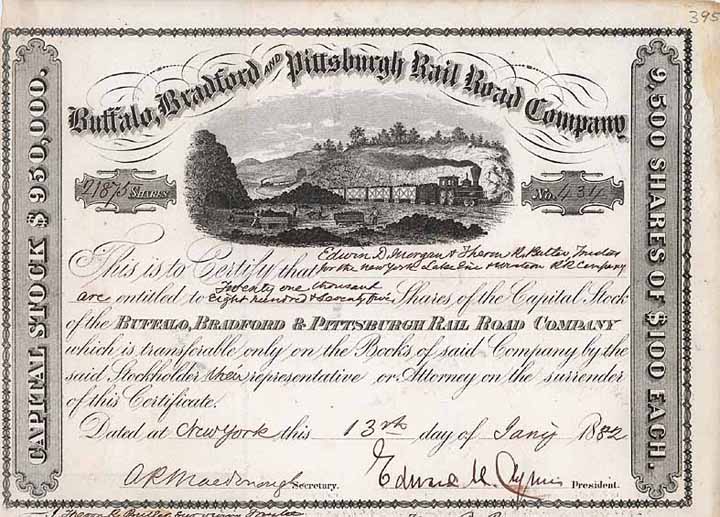 395
Buffalo, Bradford AND Pittsburgh Rail Road Company
CAPITAL STOCK $ 950,000.
9,500 SHARES OF $100 EACH.
21875 SHARES
No. 434
Edwin D. Morgan & Theron R. Butler Trustees
This is to Certify that for the New York Lake Erie & Western RR Company
Twenty one thousand
are entitled to eight hundred & seventy five Shares of the Capital Stock
of the BUFFALO, BRADFORD & PITTSBURGH RAIL ROAD COMPANY
which is transferable only on the Books of said Company by the
said Stockholder their representative or Attorney on the surrender
of this Certificate.
Dated at New York this 13th day of Jany 1882
A R Macdonough Secretary. President.
Theron R. Butler